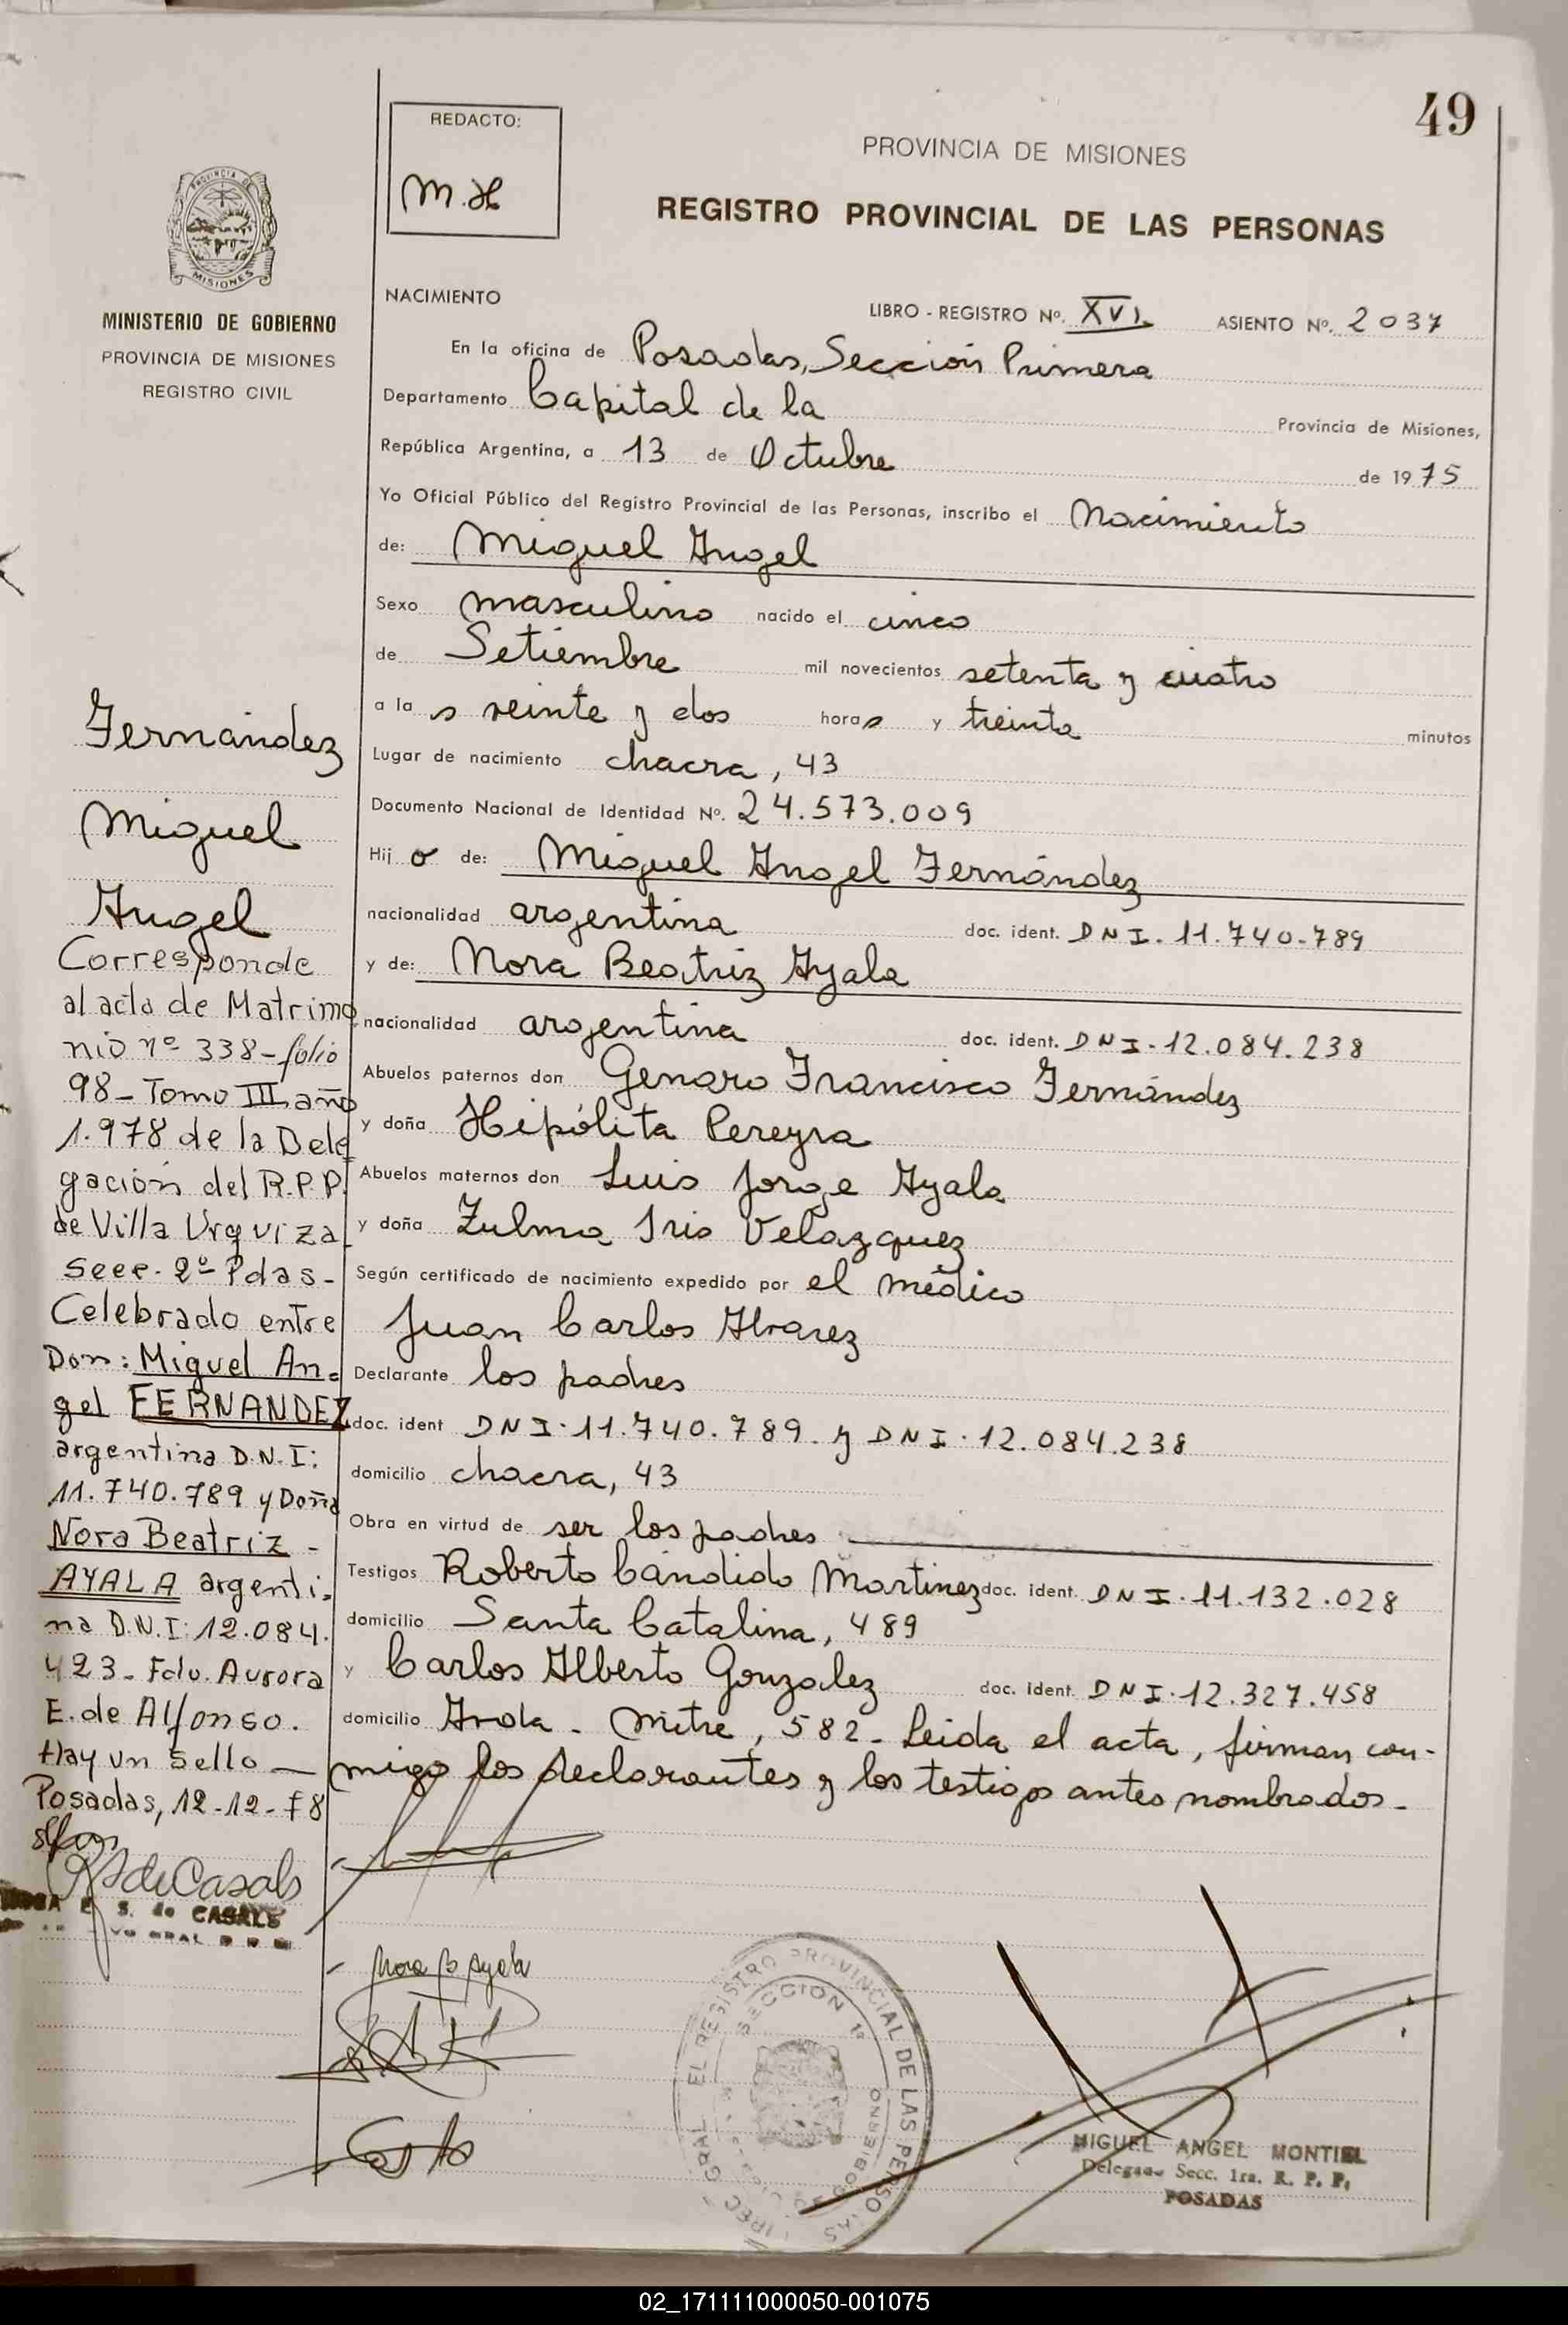 49
REDACTO:
M.H
PROVINCIA DE MISIONES
REGISTRO PROVINCIAL DE LAS PERSONAS
PROVINCIA DE
MISIONES
MINISTERIO DE GOBIERNO
PROVINCIA DE MISIONES
REGISTRO CIVIL
Fernández
Miguel
Angel
Corresponde
al acta de Matrimo
nio nº 338-folio
98-Tomo III año
1.978 de la Dele
gación del R.P.P.
de Villa Urquiza
Secc. 2º Pdas-
Celebrado entre
Don: Miguel An=
gel FERNANDEZ
argentina D.N.I:
11.740.789 y Doña
Nora Beatriz -
AYALA argenti-
na D.N.I: 12.084.
423- Fdo. Aurora
E. de Alfonso.
Hay un sello —
Posadas, 12-12-78
de Casals
E S. de CASALS
NACIMIENTO
LIBRO - REGISTRO Nº. XVI ASIENTO Nº. 2037
En la oficina de Posadas, Sección Primera
Departamento Capital de la Provincia de Misiones,
República Argentina, a 13 de Octubre de 1975
Yo Oficial Público del Registro Provincial de las Personas, inscribo el Nacimiento
de: Miguel Angel
Sexo masculino nacido el cinco
de Setiembre mil novecientos setenta y cuatro
a la s veinte y dos horas y treinta minutos
Lugar de nacimiento chacra, 43
Documento Nacional de Identidad Nº. 24.573.009
Hij o de: Miguel Angel Fernández
nacionalidad argentina doc. ident. DNI. 11.740.789
y de: Nora Beatriz Ayala
nacionalidad argentina doc. ident. DNI. 12.084.238
Abuelos paternos don Genaro Francisco Fernández
y doña Hipólita Pereyra
Abuelos maternos don Luis Jorge Ayala
y doña Zulma Iris Velazquez
Según certificado de nacimiento expedido por el médico
Juan Carlos Alvarez
Declarante los padres
doc. ident DNI. 11.740.789. y DNI. 12.084.238
domicilio chacra, 43
Obra en virtud de ser los padres
Testigos Roberto Cándido Martinez doc. ident. DNI. 11.132.028
domicilio Santa Catalina, 489
y Carlos Alberto Gonzalez doc. ident. DNI. 12.327.458
domicilio Avda. Mitre, 582- Leida el acta, firman con-
migo los declarantes y los testigos antes nombrados-
Nora B Ayala
EL REGISTRO PROVINCIAL DE LAS PERSONAS
SECCION 1ª
GOBIERNO
MIGUEL ANGEL MONTIEL
Secc. 1ra. R. P. P.
POSADAS
02_171111000050-001075